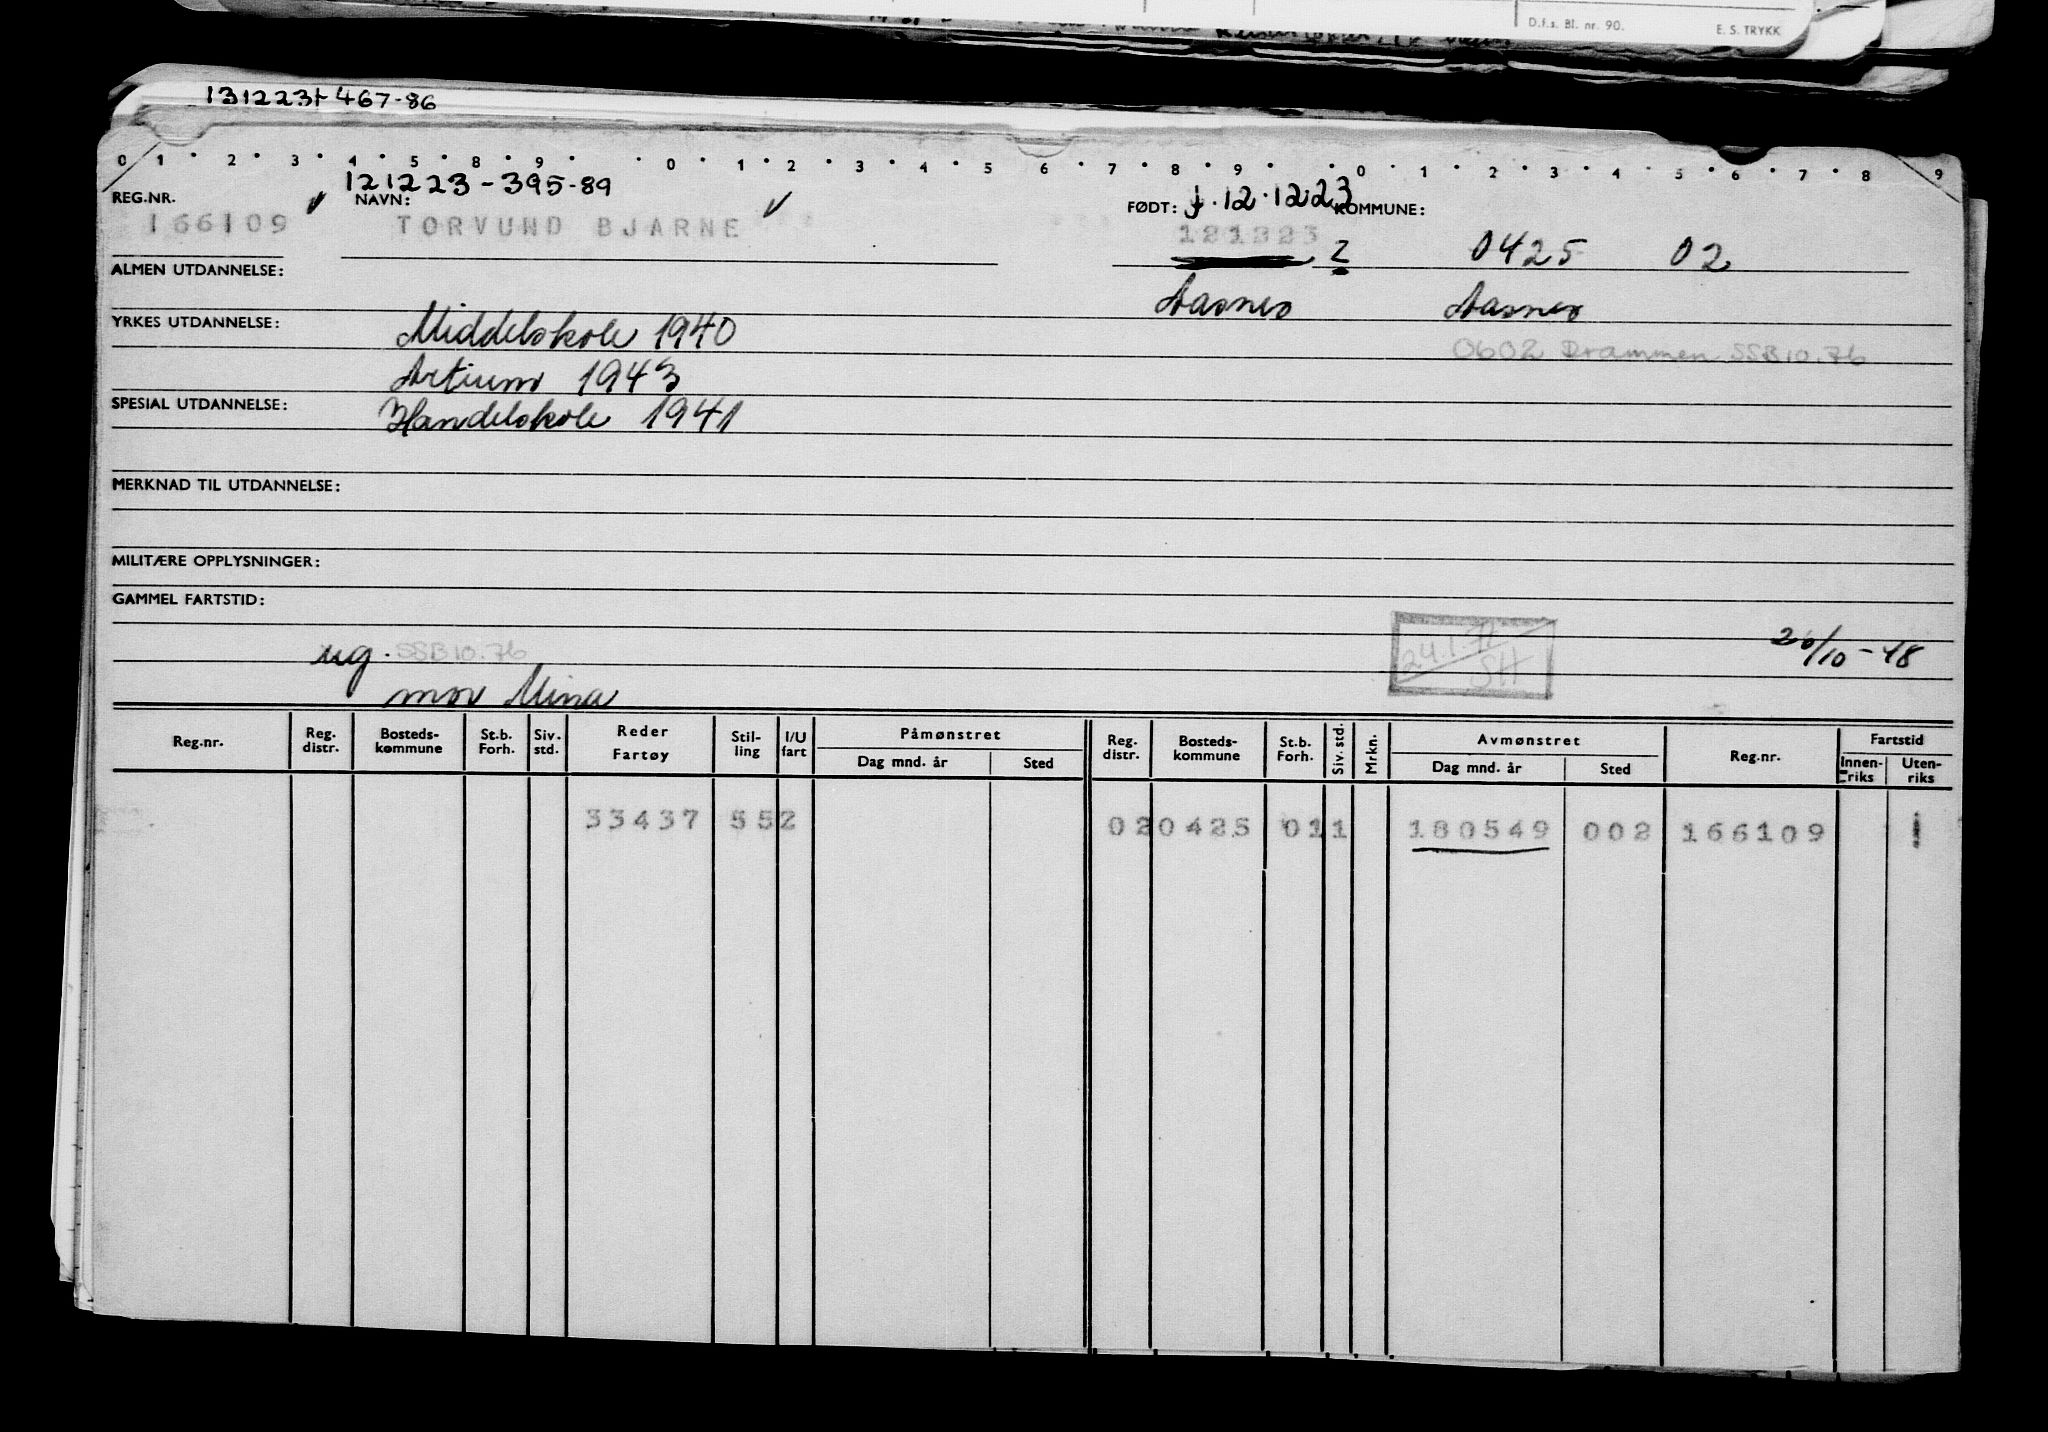 D.f.s. Bl. nr. 90. E. S. TRYKK
131223+ 467-86
0 1 2 3 4 5 8 9 0 1 2 3 4 5 6 7 8 9 0 1 2 3 4 5 6 7 8 9
121223-395-89
REG.NR. NAVN: FØDT: 12.12.23 KOMMUNE:
166109 TORVUND BJARNE 121223 2 0425 02
ALMEN UTDANNELSE:
Aasnes Aasnes
YRKES UTDANNELSE: Middelskole 1940
0602 Drammen SSB 10.76
Artium 1943
SPESIAL UTDANNELSE: Handelskole 1941
MERKNAD TIL UTDANNELSE:
MILITÆRE OPPLYSNINGER:
GAMMEL FARTSTID:
24.1.72
SH
20/10-48
ug. SSB 10.76
mor Mina
Reg.nr. Reg. distr. Bosteds-kommune St.b. Forh. Siv. std. Reder Fartøy Stil-ling I/U fart Påmønstret Dag mnd. år Sted Reg. distr. Bosteds-kommune St.b. Forh. Siv. std. Mrkn. Avmønstret Dag mnd. år Sted Reg.nr. Fartstid Innen-riks Uten-riks
33437 552 02 0425 01 1 180549 002 166109 1